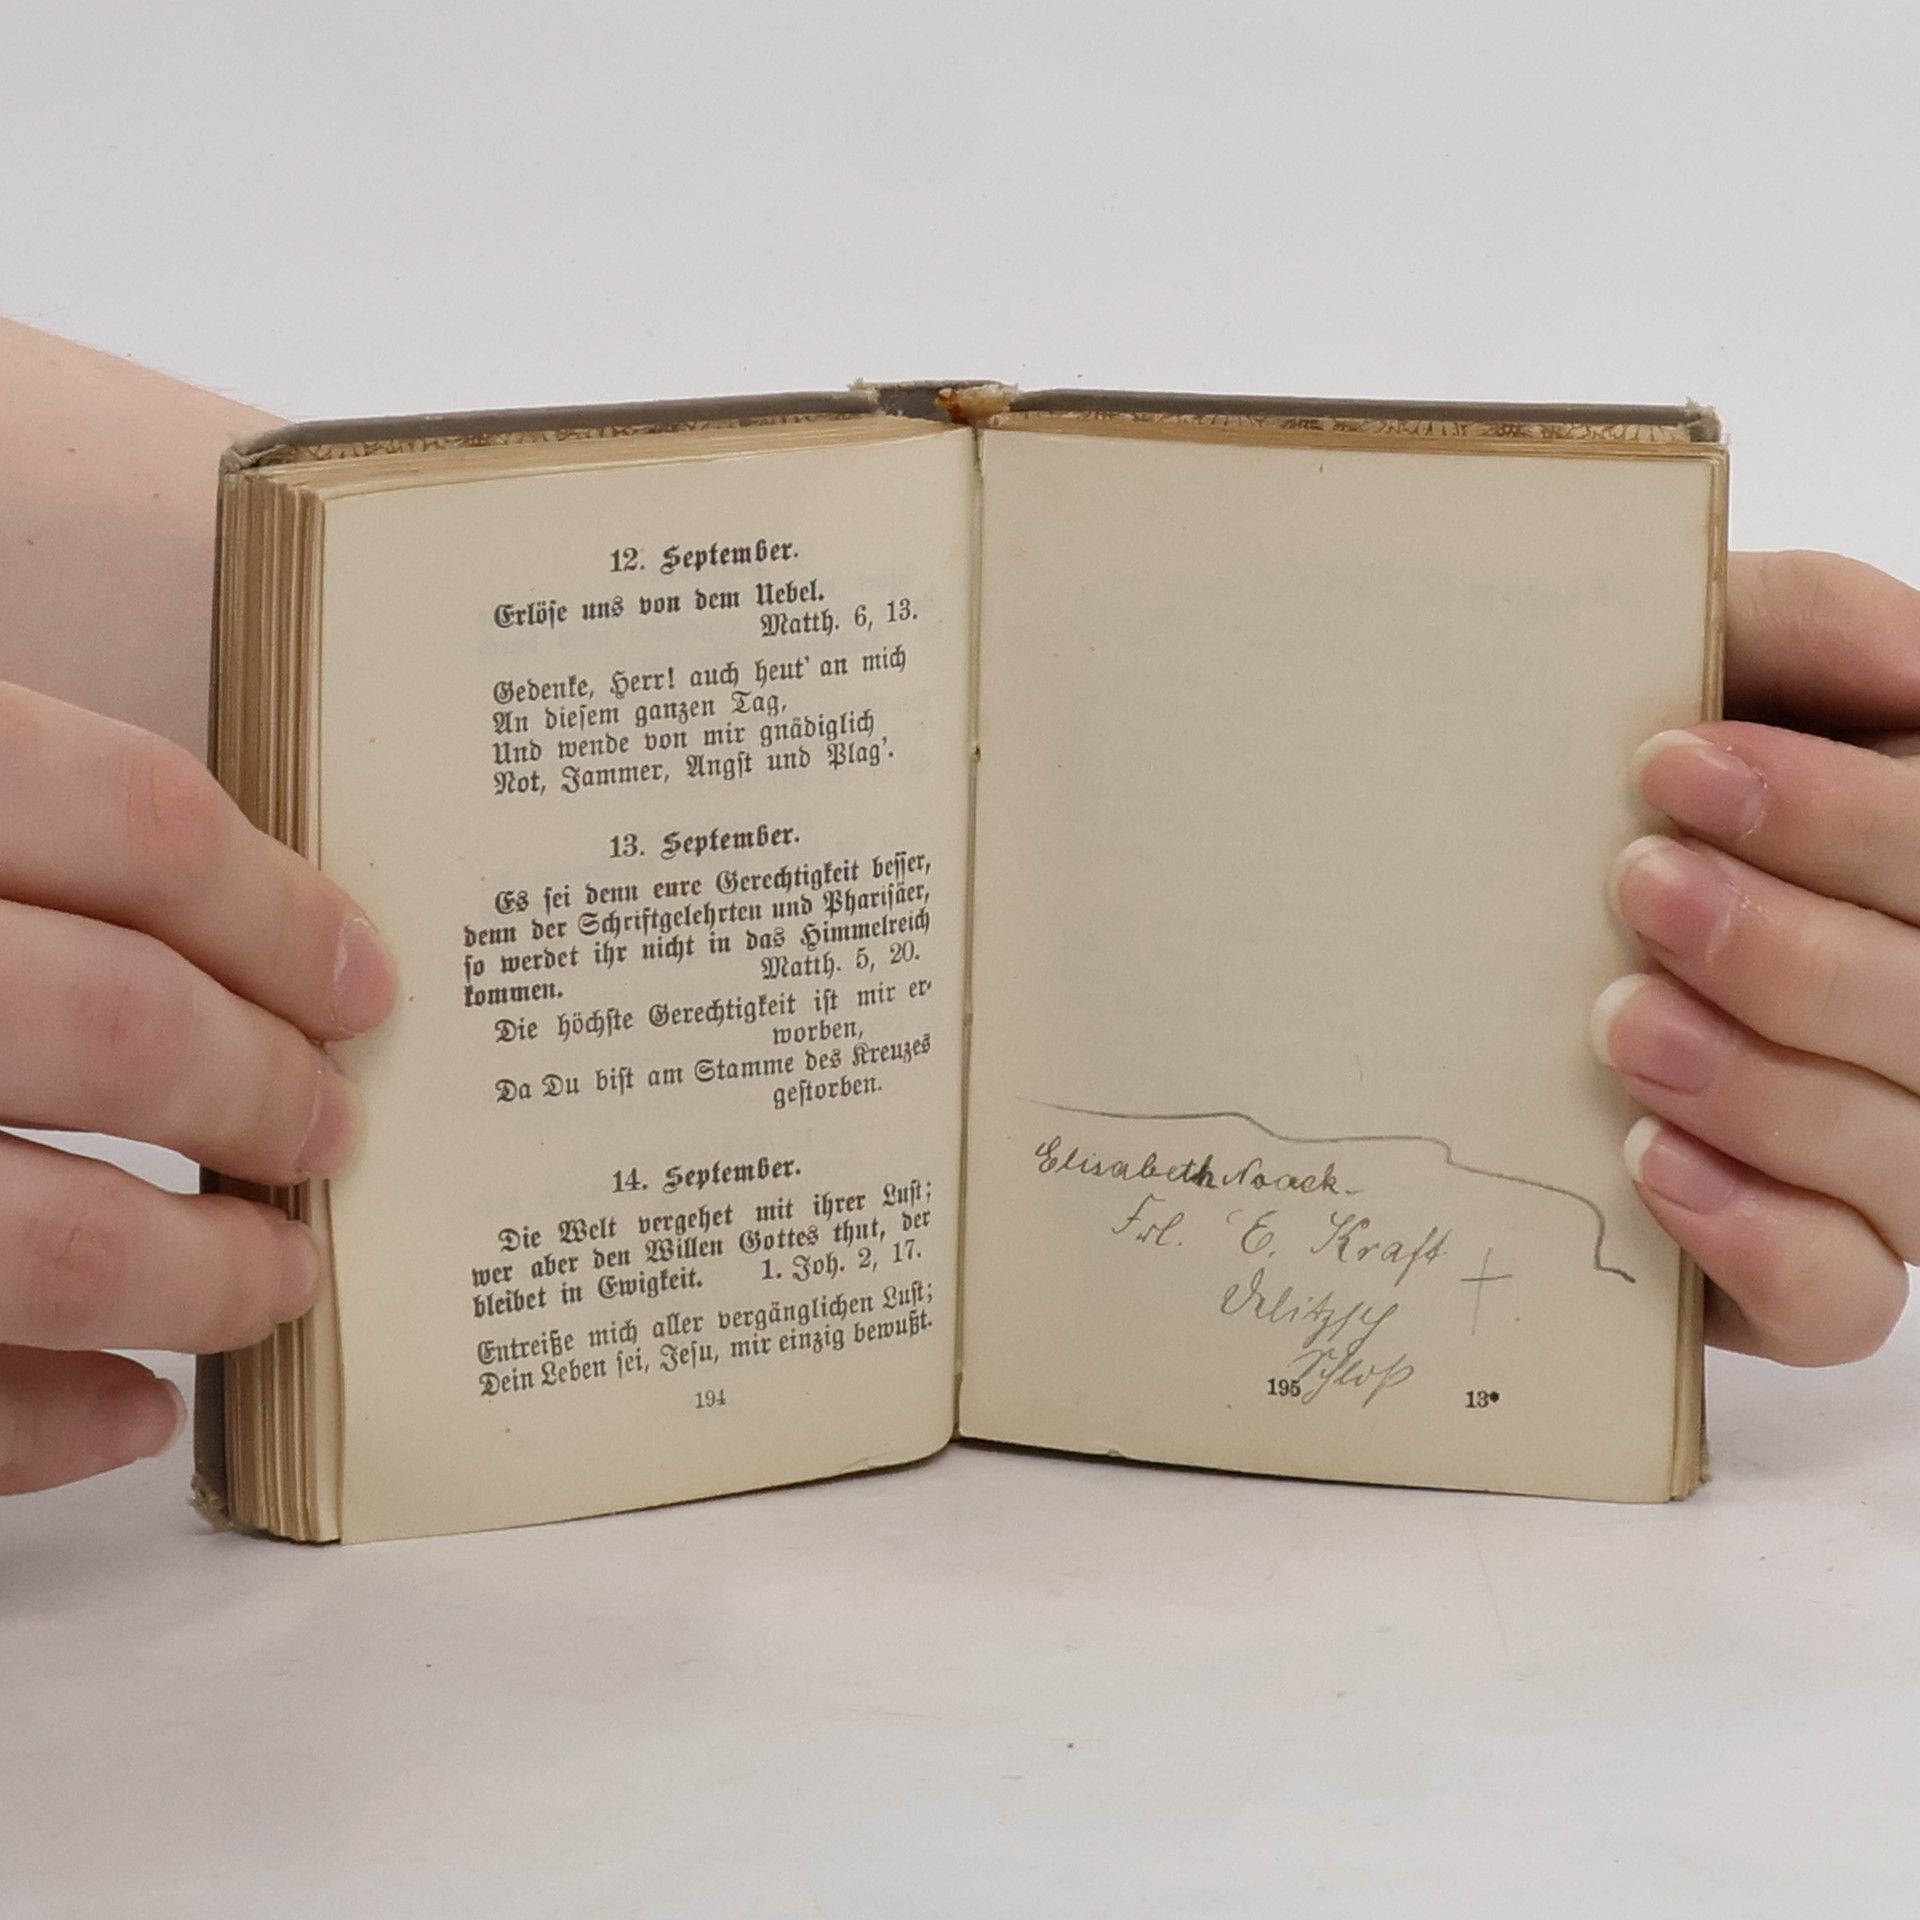 12. September.
Erlöse uns von dem Uebel.
Matth. 6, 13.
Gedenke, Herr! auch heut' an mich
An diesem ganzen Tag,
Und wende von mir gnädiglich
Not, Jammer, Angst und Plag'.
13. September.
Es sei denn eure Gerechtigkeit besser,
denn der Schriftgelehrten und Pharisäer,
so werdet ihr nicht in das Himmelreich
kommen. Matth. 5, 20.
Die höchste Gerechtigkeit ist mir er-
worben,
Da Du bist am Stamme des Kreuzes
gestorben.
14. September.
Die Welt vergehet mit ihrer Lust;
wer aber den Willen Gottes thut, der
bleibet in Ewigkeit. 1. Joh. 2, 17.
Entreiße mich aller vergänglichen Lust;
Dein Leben sei, Jesu, mir einzig bewußt.
194
Elisabeth Noack
Frl. E. Kraft
Delitzsch
Schloß
195 13*